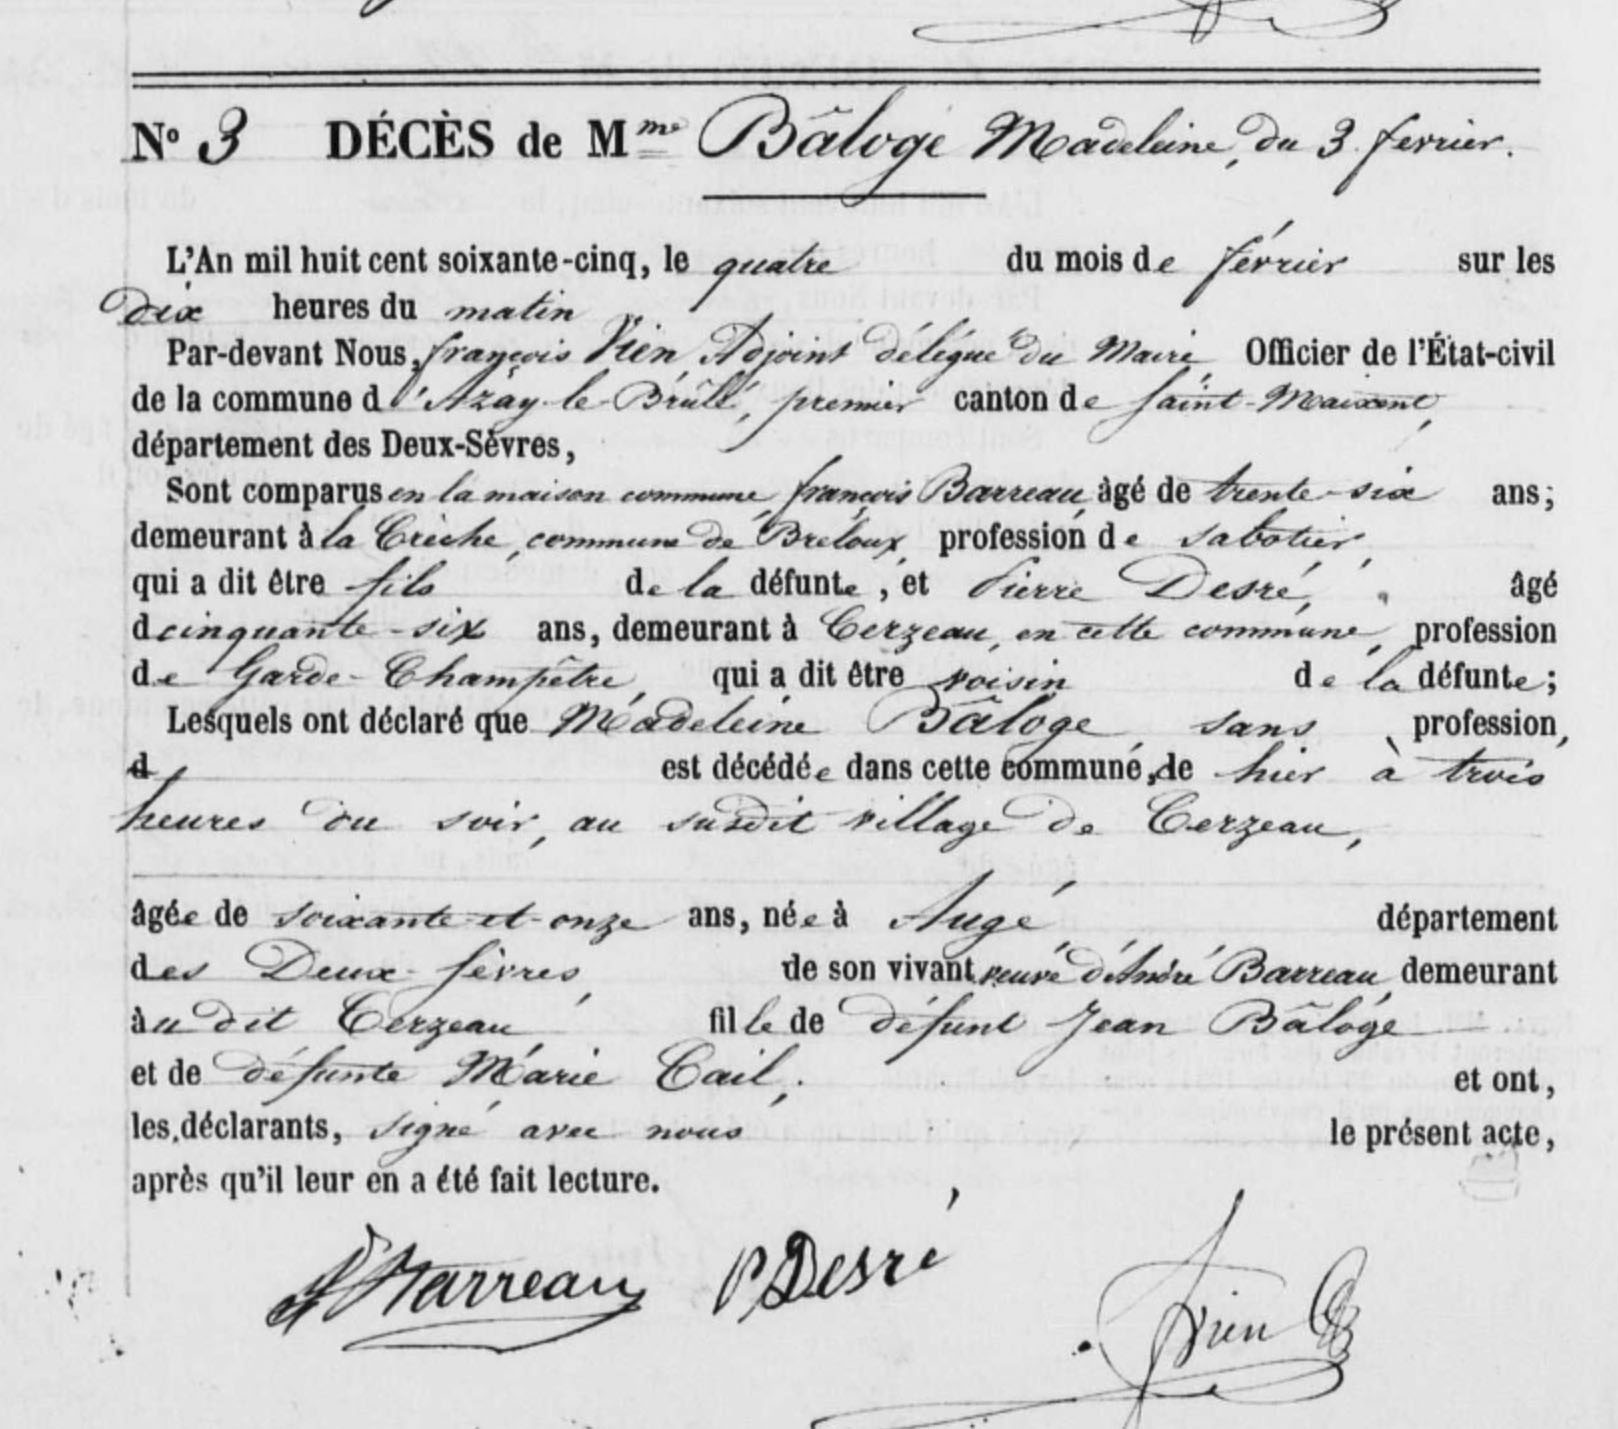 N° 3 DÉCÈS de Mme Bâloge Madeleine, du 3 février.
L'An mil huit cent soixante-cinq, le quatre du mois de février sur les
dix heures du matin
Par-devant Nous, françois Vien, Adjoint délégué du Maire, Officier de l'État-civil
de la commune d'Azay-le-Brûlé, premier canton de Saint-Maixent,
département des Deux-Sèvres,
Sont comparus en la maison commune, françois Barreau, âgé de trente-six ans;
demeurant à la Crèche, commune de Breloux, profession de sabotier,
qui a dit être fils de la défunte, et Pierre Desré, âgé
de cinquante-six ans, demeurant à Cerzeau, en cette commune, profession
de Garde-Champêtre, qui a dit être voisin de la défunte;
Lesquels ont déclaré que Madeleine Bâloge, sans profession,
d est décédée dans cette commune, de hier à trois
heures du soir, au susdit village de Cerzeau,
âgée de soixante-et-onze ans, née à Augé département
des Deux-Sèvres, de son vivant veuve d'André Barreau, demeurant
au dit Cerzeau, fille de défunt Jean Bâloge
et de défunte Marie Cail, et ont,
les déclarants, signé avec nous le présent acte,
après qu'il leur en a été fait lecture.
f Barreau P. Desré
Vien